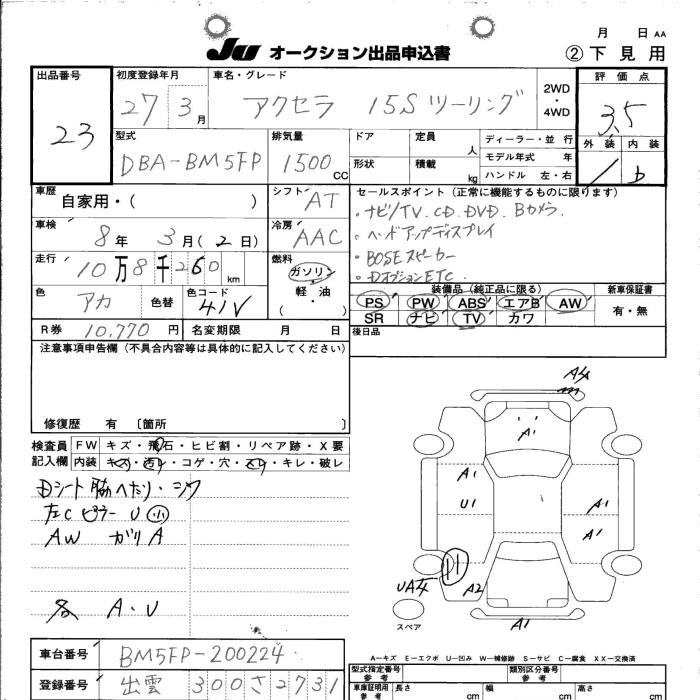 月 日 AA
JU オークション出品申込書 ②下見用
出品番号 初度登録年月 車名・グレード 2WD・4WD 評価点
23 27 3月 アクセラ 15S ツーリング 3.5
型式 排気量 ドア 定員 人 ディーラー・並行 外装 内装
DBA-BM5FP 1500 CC 形状 積載 kg モデル年式 年
ハンドル 左・右
車歴 自家用・( ) シフト AT セールスポイント(正常に機能するものに限ります)
・ナビ/TV. CD. DVD. Bカメラ.
車検 8年 3月(2日) 冷房 AAC ・ヘッドアップディスプレイ
・BOSEスピーカー
走行 10万8千260km 燃料 ガソリン 軽・油 ( ) ・Dオプション ETC.
色 アカ 色替 色コード 41V 装備品(純正品に限る) 新車保証書
PS PW ABS エアB AW 有・無
SR ナビ TV カワ
R券 10,770円 名変期限 月 日 後日品
注意事項申告欄(不具合内容等は具体的に記入してください)
修復歴 有 〔箇所 〕
検査員記入欄 FW キズ・飛石・ヒビ割・リペア跡・X要
内装 キズ・汚れ・コゲ・穴・スレ・キレ・破レ
Dシート脇へたり・シワ
左Cピラー U小
AW ガリA
各 A・U
A4
A1
A1
U1
A1
A1
P1
UA4
A2
A1
スペア
A-キズ E-エクボ U-凹み W-補修跡 S-サビ C-腐食 XX-交換済
車台番号 BM5FP-200224
登録番号 出雲 300さ2731
型式指定番号 参考 類別区分番号 参考
車庫証明用 参考 長さ cm 幅 cm 高さ cm